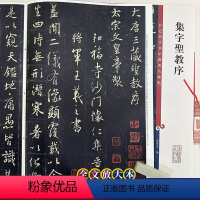 集字聖教序
大唐三藏聖教序
太宗文皇帝製
弘福寺沙門懷仁集晉
將軍王羲之書
蓋聞二儀有像顯覆載以含
生四時無形潛寒暑以化
是以窺天鑑地庸愚皆識其
全文放大本